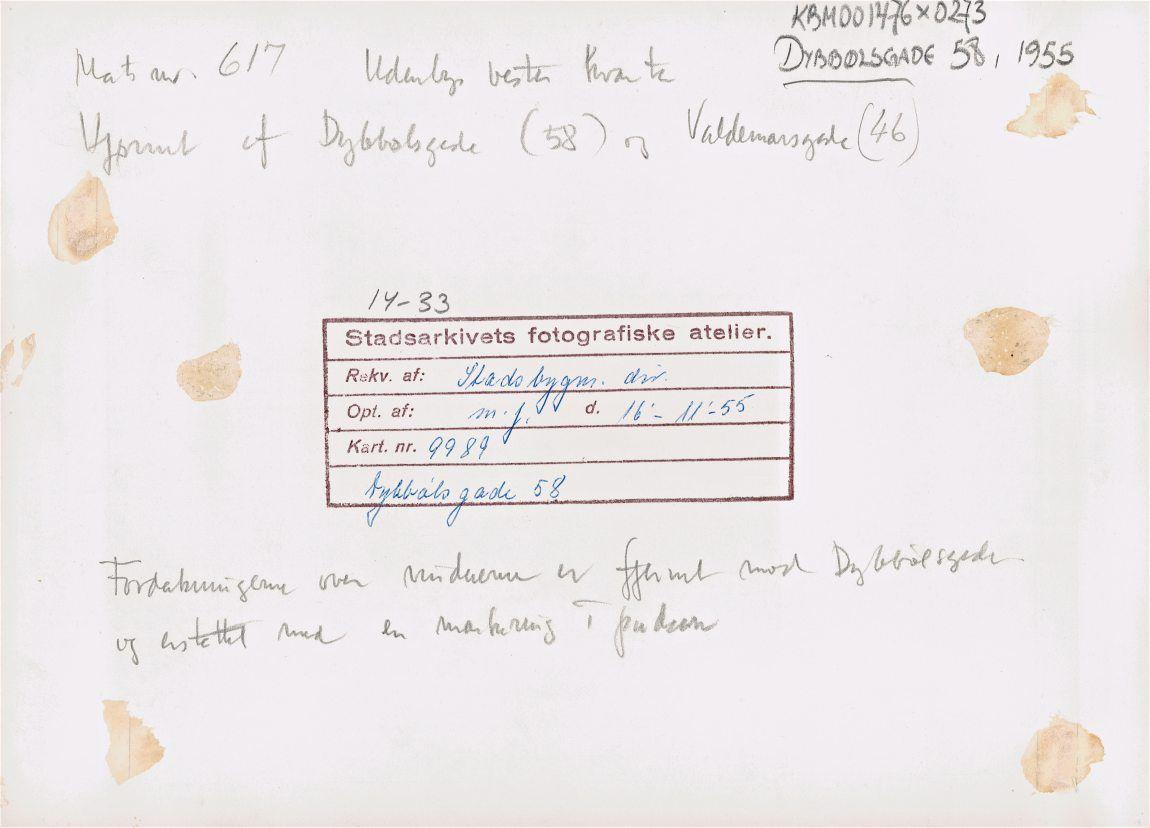 KBM001476x0273
DYBBØLSGADE 58, 1955
Mats nr. 617 Udenbys vester Kvarter
Hjørnet af Dybbølsgade (58) og Valdemarsgade (46)
14-33
Stadsarkivets fotografiske atelier.
Rekv. af: Stadsbygm. dir.
Opt. af: m.j. d. 16-11-55
Kart. nr. 9989
Dybbølsgade 58
Fordakningerne over vinduerne er fjernet mod Dybbølsgade
og erstattet med en markering i pudsen